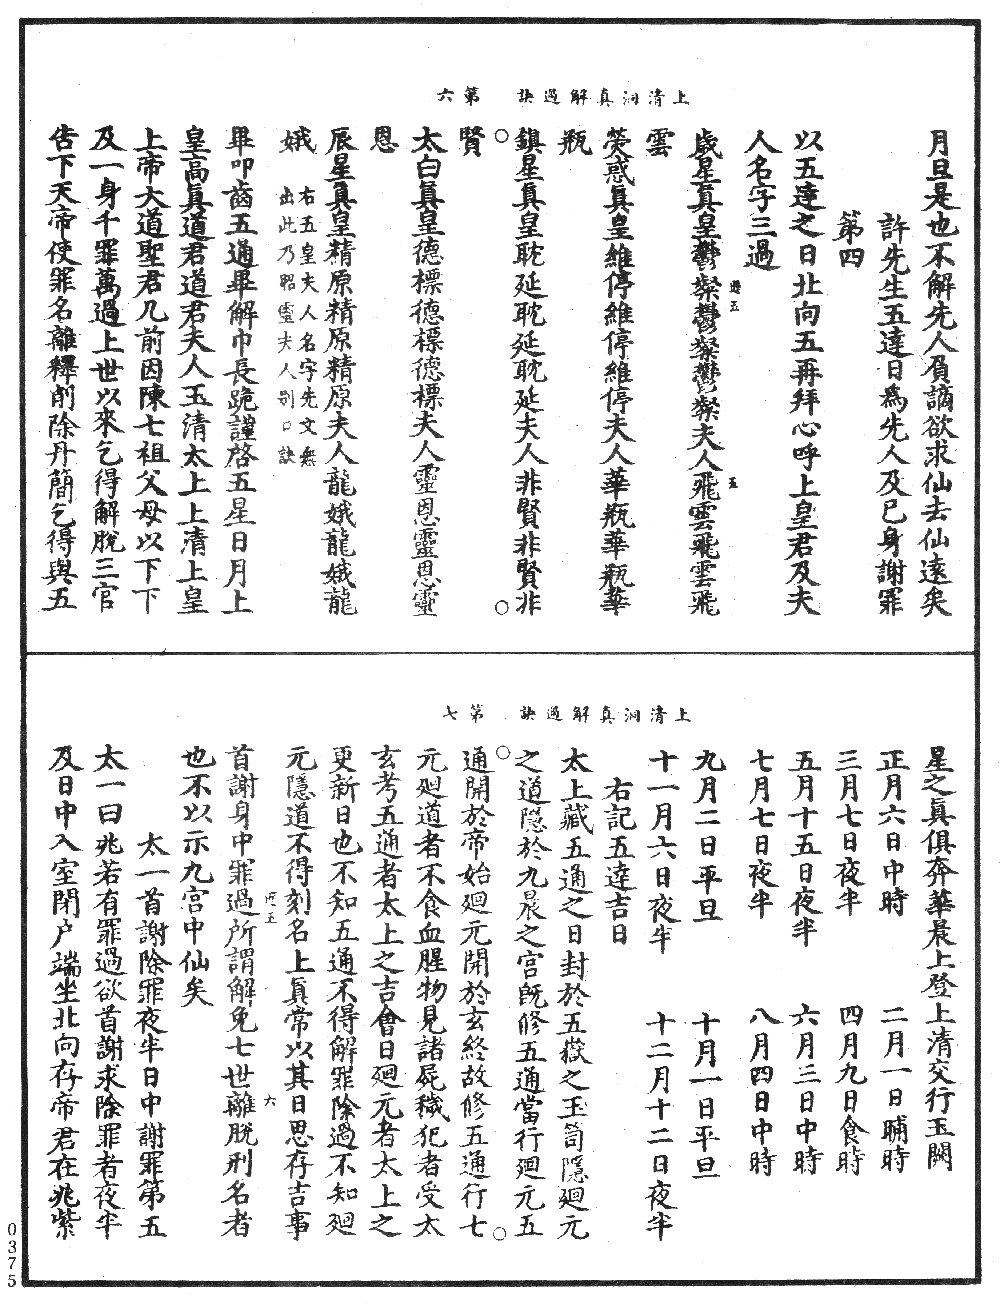 上清洞真解過訣　第六
月旦是也不解先人負謫欲求仙去仙遠矣
許先生五達日為先人及己身謝罪
第四
以五達之日北向五再拜心呼上皇君及夫
人名字三過
歲星真皇鬱粲鬱粲鬱粲夫人飛雲飛雲飛
雲
熒惑真皇維停維停維停夫人華瓶華瓶華
瓶
鎮星真皇耽延耽延耽延夫人非賢非賢非
賢
太白真皇德標德標德標夫人靈恩靈恩靈
恩
辰星真皇精原精原精原夫人龍娥龍娥龍
娥　右五皇夫人名字先文無
出此乃昭靈夫人別口訣
畢叩齒五通畢解巾長跪謹啓五星日月上
皇高真道君道君夫人玉清太上上清上皇
上帝大道聖君几前因陳七祖父母以下下
及一身千罪萬過上世以來乞得解脫三官
告下天帝使罪名離釋削除丹簡乞得與五
上清洞真解過訣　第七
星之真俱奔華晨上登上清交行玉闕
正月六日中時　二月一日晡時
三月七日夜半　四月九日食時
五月十五日夜半　六月三日中時
七月七日夜半　八月四日中時
九月二日平旦　十月一日平旦
十一月六日夜半　十二月十二日夜半
右記五達吉日
太上藏五通之日封於五嶽之玉笥隱迴元
之道隱於九晨之宮既修五通當行迴元五
通開於帝始迴元開於玄終故修五通行七
元迴道者不食血腥物見諸屍穢犯者受太
玄考五通者太上之吉會日迴元者太上之
更新日也不知五通不得解罪除過不知迴
元隱道不得刻名上真常以其日思存吉事
首謝身中罪過所謂解免七世離脫刑名者
也不以示九宮中仙矣
太一首謝除罪夜半日中謝罪第五
太一曰兆若有罪過欲首謝求除罪者夜半
及日中入室閉户端坐北向存帝君在兆紫
0375